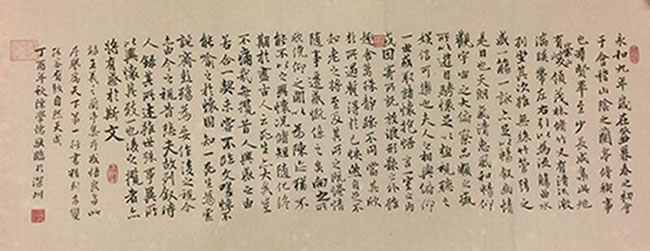 永和九年歲在癸丑暮春之初會
于會稽山陰之蘭亭脩禊事
也群賢畢至少長咸集此地
有崇山峻領茂林脩竹又有清流激
湍暎帶左右引以為流觴曲水
列坐其次雖無絲竹管弦之
盛一觴一詠亦足以暢敘幽情
是日也天朗氣清惠風和暢仰
觀宇宙之大俯察品類之盛
所以遊目騁懷足以極視聽之
娛信可樂也夫人之相與俯仰
一世或取諸懷抱悟言一室之內
或因寄所託放浪形骸之外雖
趣舍萬殊靜躁不同當其欣
於所遇暫得於己快然自足不
知老之將至及其所之既惓情
隨事遷感慨係之矣向之所
欣俛仰之間以為陳迹猶不
能不以之興懷況脩短隨化終
期於盡古人云死生亦大矣豈
不痛哉每攬昔人興感之由
若合一契未嘗不臨文嗟悼不
能喻之於懷固知一死生為虛
誕齊彭殤為妄作後之視今
亦由今之視昔悲夫故列敘時
人錄其所述雖世殊事異所
以興懷其致一也後之攬者亦
將有感於斯文
錄王羲之蘭亭集序 悟良多此
序譽為天下第一行書
有致自然天成
丁酉年秋陳學 臨於深圳